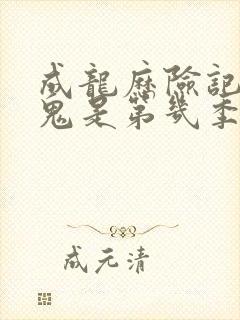 成龍歷險記
鬼是第幾季
成元清